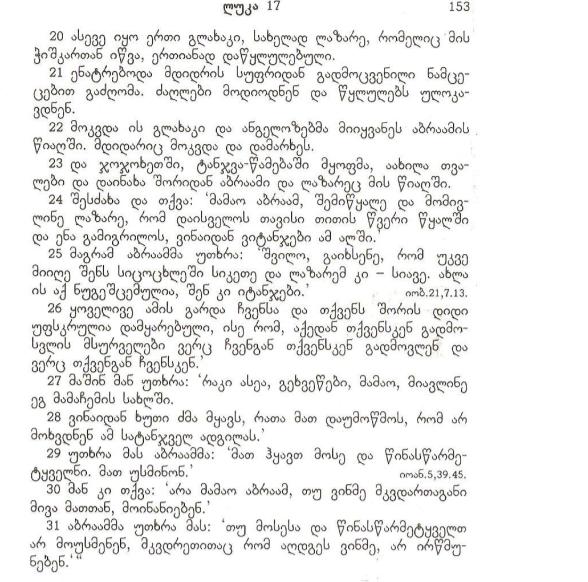 ლუკა 17 153
20 ასევე იყო ერთი გლახაკი, სახელად ლაზარე, რომელიც მის
ჭიშკართან იწვა, ერთიანად დაწყლულებული.
21 ენატრებოდა მდიდრის სუფრიდან გადმოცვენილი ნამცე-
ცებით გაძღომა. ძაღლები მოდიოდნენ და წყლულებს ულოკა-
ვდნენ.
22 მოკვდა ის გლახაკი და ანგელოზებმა მიიყვანეს აბრაამის
წიაღში. მდიდარიც მოკვდა და დამარხეს.
23 და ჯოჯოხეთში, ტანჯვა-წამებაში მყოფმა, აახილა თვა-
ლები და დაინახა შორიდან აბრაამი და ლაზარეც მის წიაღში.
24 შესძახა და თქვა: ‘მამაო აბრაამ, შემიწყალე და მომივ-
ლინე ლაზარე, რომ დაისველოს თავისი თითის წვერი წყალში
და ენა გამიგრილოს, ვინაიდან ვიტანჯები ამ ალში.’
25 მაგრამ აბრაამმა უთხრა: ‘შვილო, გაიხსენე, რომ უკვე
მიიღე შენს სიცოცხლეში სიკეთე და ლაზარემ კი – სიავე. ახლა
ის აქ ნუგეშცემულია, შენ კი იტანჯები.’ იობ.21,7.13.
26 ყოველივე ამის გარდა ჩვენსა და თქვენს შორის დიდი
უფსკრულია დამყარებული, ისე რომ, აქედან თქვენსკენ გადმო-
სვლის მსურველები ვერც ჩვენგან თქვენსკენ გადმოვლენ და
ვერც თქვენგან ჩვენსკენ.’
27 მაშინ მან უთხრა: ‘რაკი ასეა, გეხვეწები, მამაო, მიავლინე
ეგ მამაჩემის სახლში.
28 ვინაიდან ხუთი ძმა მყავს, რათა მათ დაუმოწმოს, რომ არ
მოხვდნენ ამ სატანჯველ ადგილას.’
29 უთხრა მას აბრაამმა: ‘მათ ჰყავთ მოსე და წინასწარმე-
ტყველნი. მათ უსმინონ.’ იოან.5,39.45.
30 მან კი თქვა: ‘არა მამაო აბრაამ, თუ ვინმე მკვდართაგანი
მივა მათთან, მოინანიებენ.’
31 აბრაამმა უთხრა მას: ‘თუ მოსესა და წინასწარმეტყველთ
არ მოუსმენენ, მკვდრეთითაც რომ აღდგეს ვინმე, არ ირწმუ-
ნებენ.’“